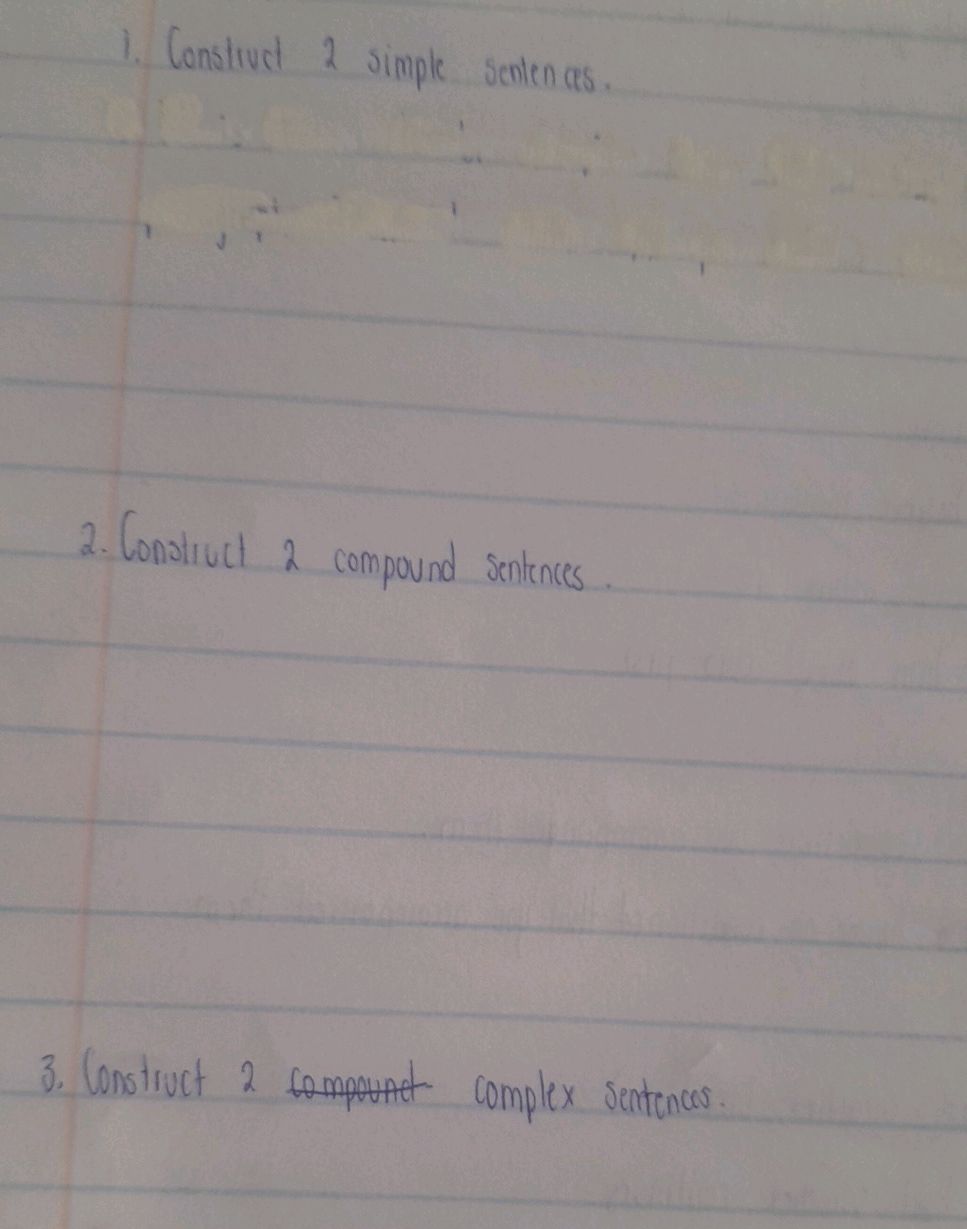 1. Construct 2 simple sentences.
2. Construct 2 compound sentences.
3. Construct 2 compound complex sentences.